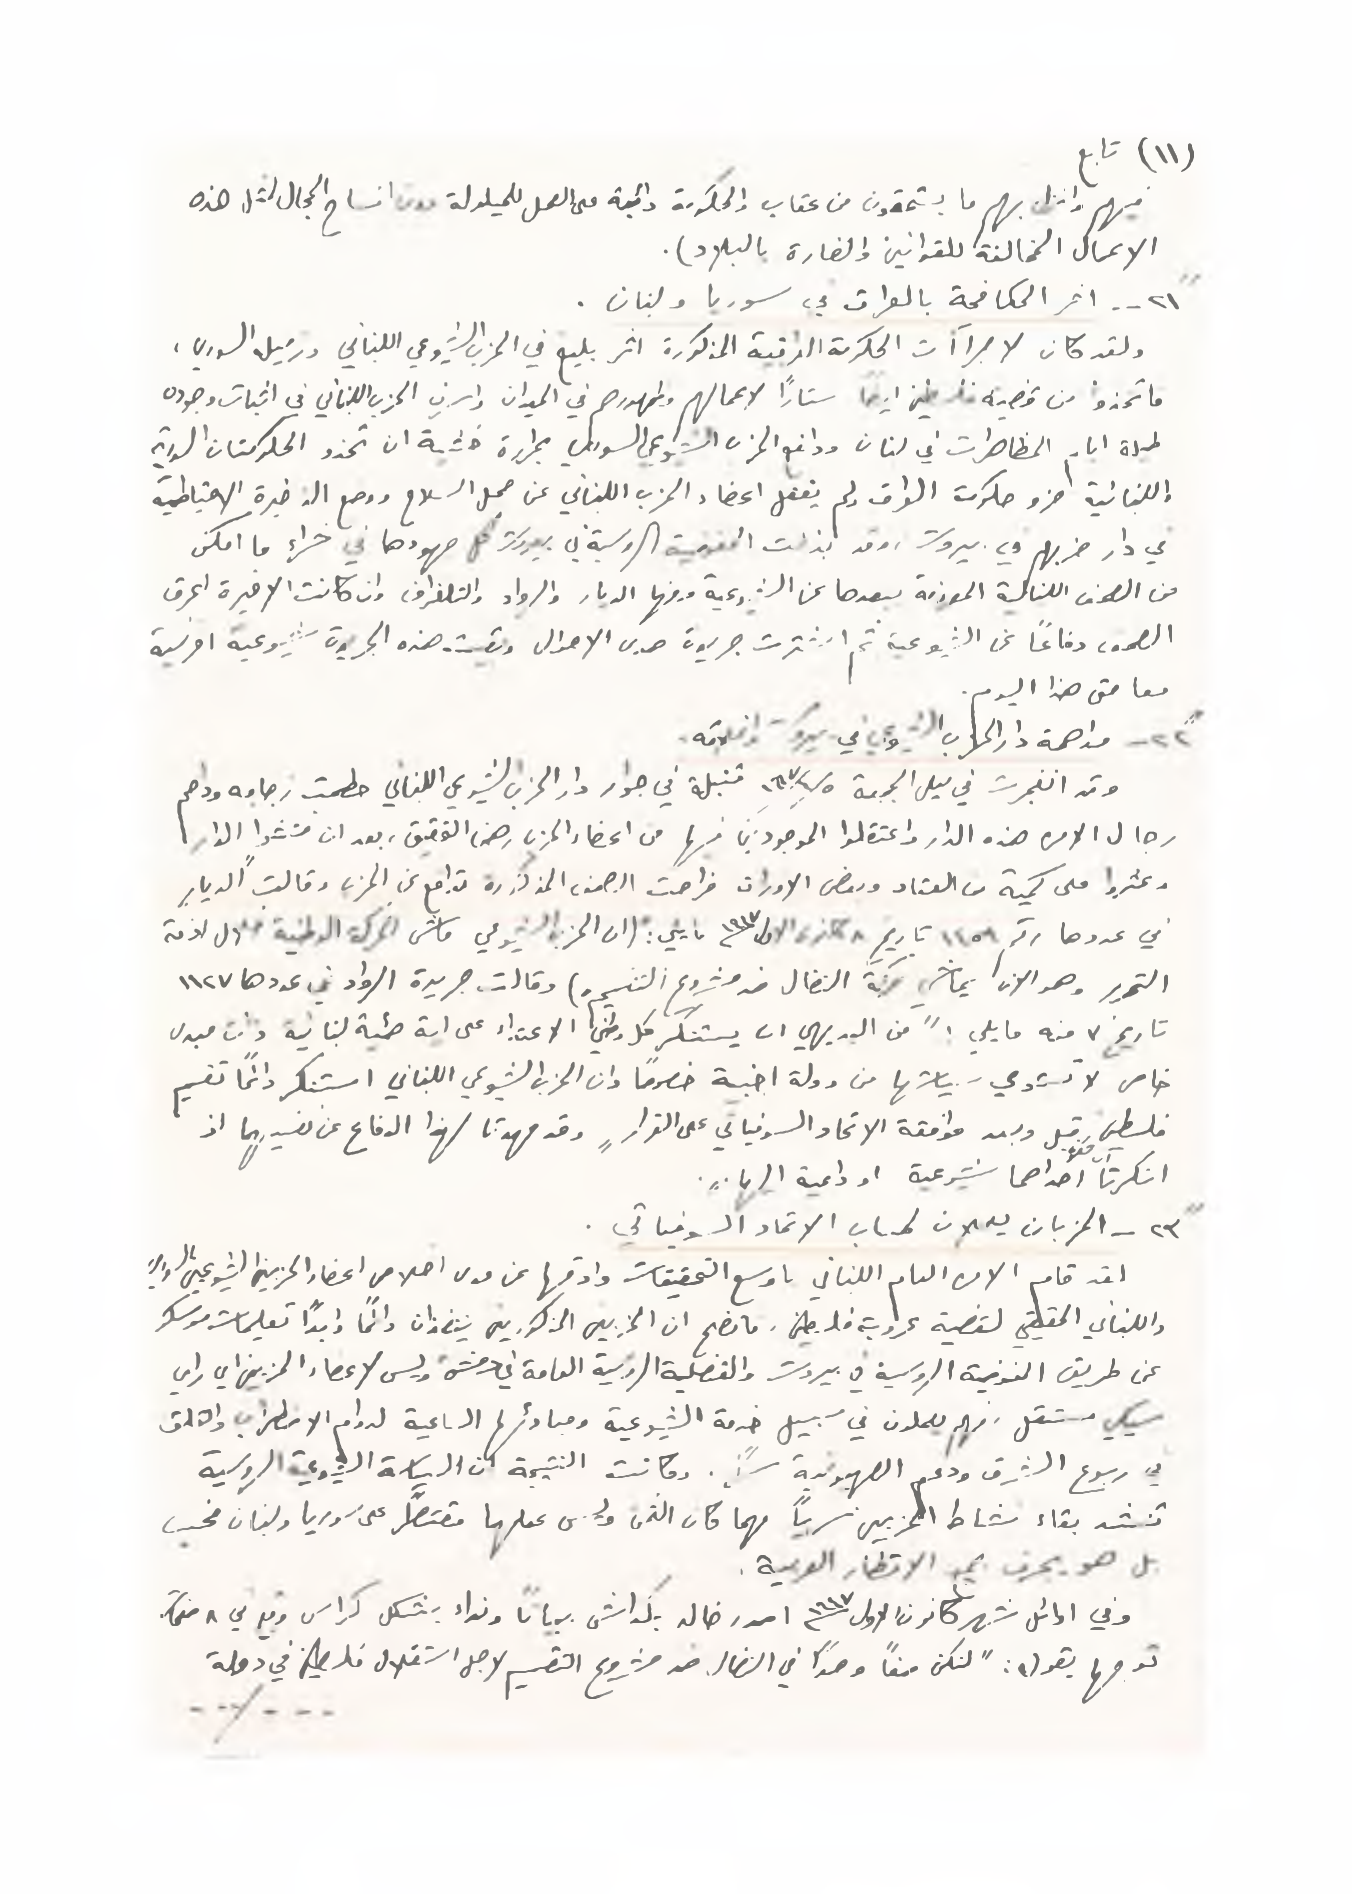 (١١) تابع
فيهم وانزل بهم ما يستحقون من عقاب والحكومة دائبة على العمل للحيلولة دون افساح المجال لمثل هذه
الاعمال المخالفة للقوانين والضارة بالبلاد).
٢١ـ اثر المكافحة بالعراق في سوريا ولبنان .
ولقد كان لاجراآت الحكومة العراقية المذكورة اثر بليغ في الحزب الشيوعي اللبناني وزميله السوري ،
فاتخذوا من قضية فلسطين ايضا ستارًا لاعمالهم وظهورهم في الميدان واسرف الحزب اللبناني في اثبات وجوده
طيلة ايام المظاهرات في لبنان ودافع الحزب الشيوعي السوري بحرارة خشية ان تحذو الحكومتان السورية
واللبنانية حذو حكومة العراق ولم يغفل اعضاء الحزب اللبناني عن حمل السلاح ووضع الذخيرة الاحتياطية
في دار حزبهم في بيروت ، وقد بذلت المفوضية الروسية في بيروت كل جهودها في شراء ما امكن
من الصحف اللبنانية المعروفة ببعدها عن الشيوعية ومنها الديار والرواد والتلغراف وان كانت الاخيرة اعرق
الصحف دفاعًا عن الشيوعية ثم اشترت جريدة صدى الاحوال وبقيت هذه الجريدة شيوعية افرنسية
معا حتى هذا اليوم.
٢٢ـ مداهمة دار الحزب الشيوعي في بيروت واغلاقه.
وقد انفجرت في ليل الجمعة قنبلة في جوار دار الحزب الشيوعي اللبناني حطمت زجاجه وداهم
رجال الامن هذه الدار واعتقلوا الموجودين فيها من اعضاء الحزب رهن التحقيق ، بعد ان فتشوا الدار
وعثروا على كمية من العتاد وبعض الاوراق فراحت الصحف المذكورة تدافع عن الحزب وقالت "الديار"
في عددها رقم ١٤٥٩ تاريخ ٨ كانون الاول ١٩٤٧ مايلي: (ان الحزب الشيوعي ماشى الحركة الوطنية خلال ازمة
التحرير وهو الآن يماشي حركة النضال ضد مشروع التقسيم) وقالت جريدة الرواد في عددها ١١٢٧
تاريخ ٧ منه مايلي : " من البديهي ان يستنكر كل وطني الاعتداء على اية هيئة لبنانية ذات مبدى
خاص لا تستوحي سياستها من دولة اجنبية خصوصًا وان الحزب الشيوعي اللبناني استنكر دائمًا تقسيم
فلسطين قبل وبعد موافقة الاتحاد السوفياتي على القرار" وقد مهدتا لهذا الدفاع عن نفسيهما اذ
انكرتا ان احداهما شيوعية او داعية اليها.
٢٣ـ الحزبان يعملان لحساب الاتحاد السوفياتي .
لقد قام الامن العام اللبناني باوسع التحقيقات وادقها عن مدى اخلاص اعضاء الحزبين الشيوعيين السوري
واللبناني الحقيقي لقضية عروبة فلسطين، فاتضح ان الحزبين المذكورين ينفذان دائمًا وابدًا تعليمات موسكو
عن طريق المفوضية الروسية في بيروت والقنصلية الروسية العامة في دمشق وليس لاعضاء الحزبين اي راي
سياسي مستقل ، فهم يعملون في سبيل خدمة الشيوعية ومبادئها الداعية لدوام الاضطراب والقلق
في ربوع الشرق ودعم الصهيونية سرًا. وكانت النتيجة ان السياسة الشيوعية الروسية
تنشد بقاء نشاط الحزبين سريًا مهما كان الثمن وليس عملها مقتصرًا على سوريا ولبنان فحسب
بل هو يجرف جميع الاقطار العربية .
وفي اوائل شهر كانون الاول ١٩٤٧ اصدر خالد بكداش بيانًا ونداء بشكل كراس وقع في ٨ صفحات
توجها بقوله: "لنكن صفًا وحدًا في النضال ضد مشروع التقسيم لاجل استقلال فلسطين في دولة